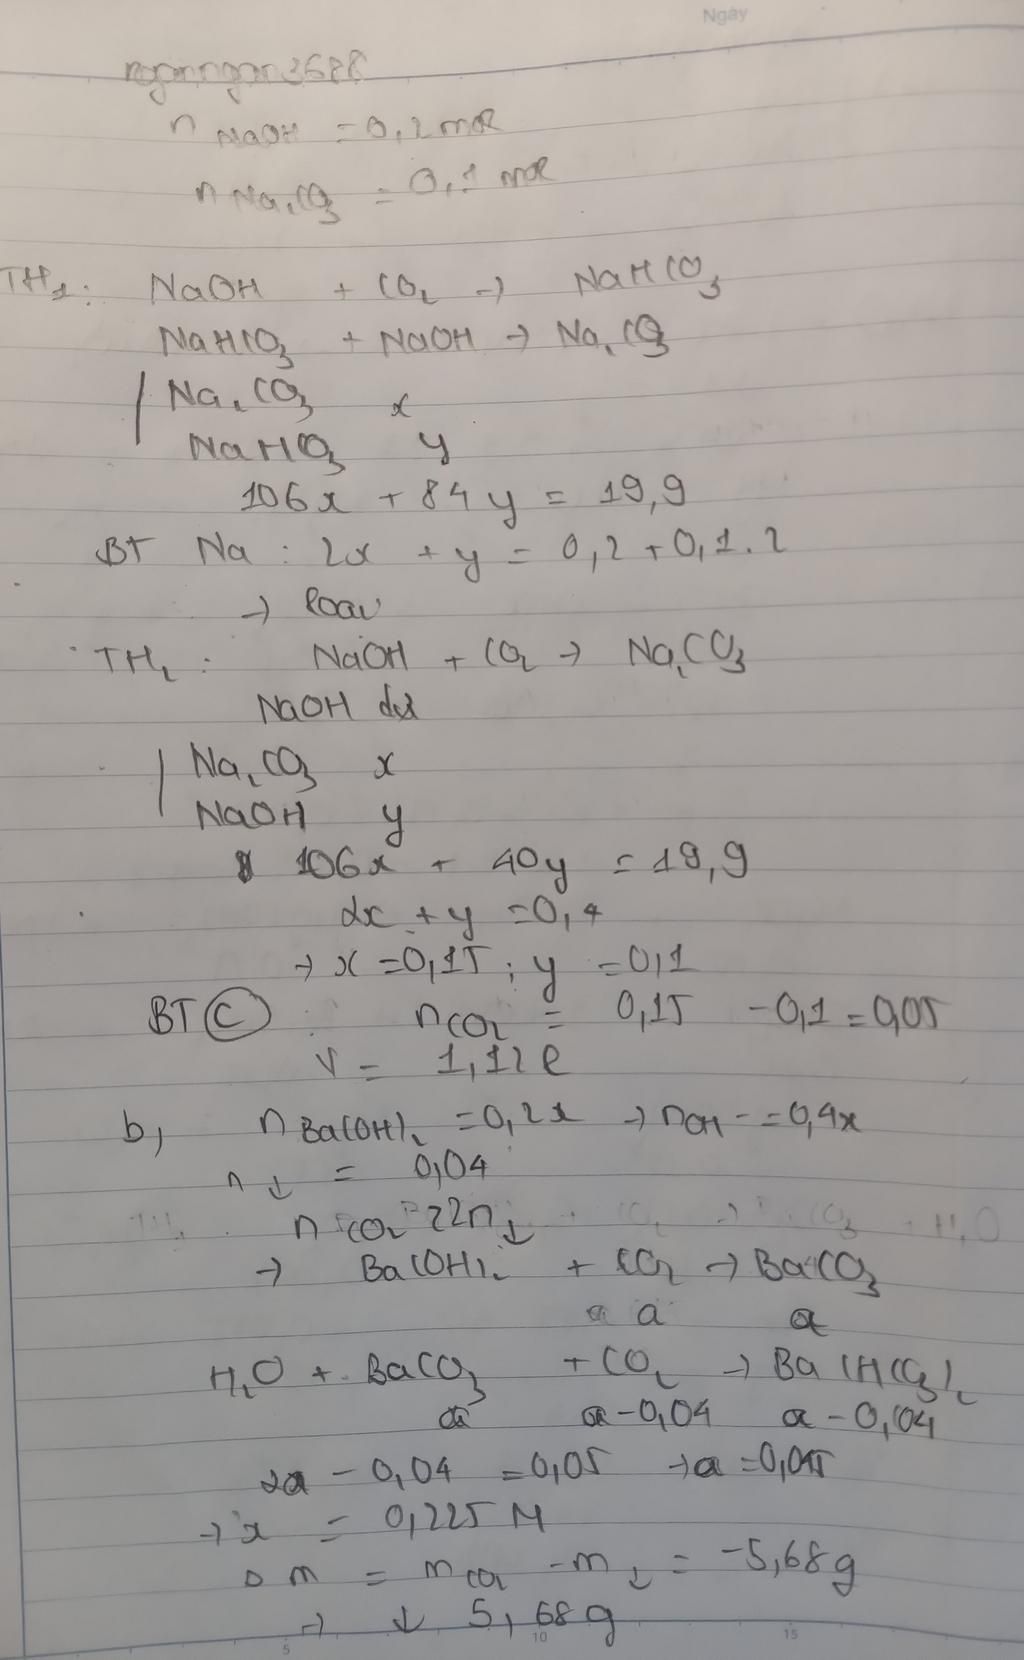 Ngày
nganngan3688
n NaOH = 0,2 mol
n Na₂CO₃ = 0,1 mol
TH₁: NaOH + CO₂ → NaHCO₃
NaHCO₃ + NaOH → Na₂CO₃
| Na₂CO₃ x
NaHCO₃ y
106x + 84y = 19,9
BT Na : 2x + y = 0,2 + 0,1.2
→ loại
TH₂ : NaOH + CO₂ → Na₂CO₃
NaOH dư
| Na₂CO₃ x
NaOH y
106x + 40y = 19,9
2x + y = 0,4
→ x = 0,15 ; y = 0,1
BT C n CO₂ = 0,15 - 0,1 = 0,05
V = 1,12 l
b, n Ba(OH)₂ = 0,2x → n OH⁻ = 0,4x
n ↓ = 0,04
n CO₂ n ↓
→ Ba(OH)₂ + CO₂ → BaCO₃
a a
H₂O + BaCO₃ + CO₂ → Ba(HCO₃)₂
a - 0,04 a - 0,04
2a - 0,04 = 0,05 → a = 0,045
→ x = 0,225 M
m = m CO₂ - m ↓ = -5,68 g
→ ↓ 5,68 g
5 10 15